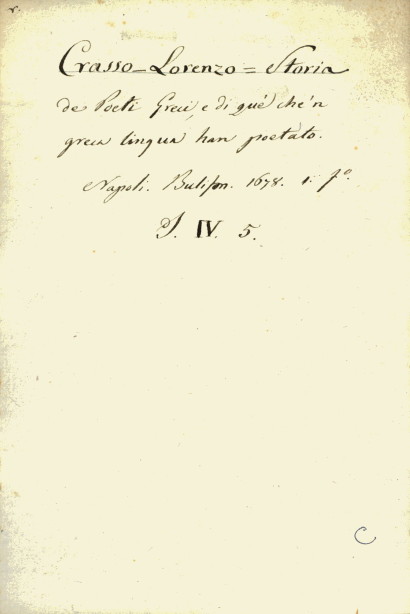 Crasso = Lorenzo = Storia
de Poeti Greci, e di que' che'n
greca lingua han poetato.
Napoli. Bulifon. 1678. 1. fº.
J. IV. 5.
C